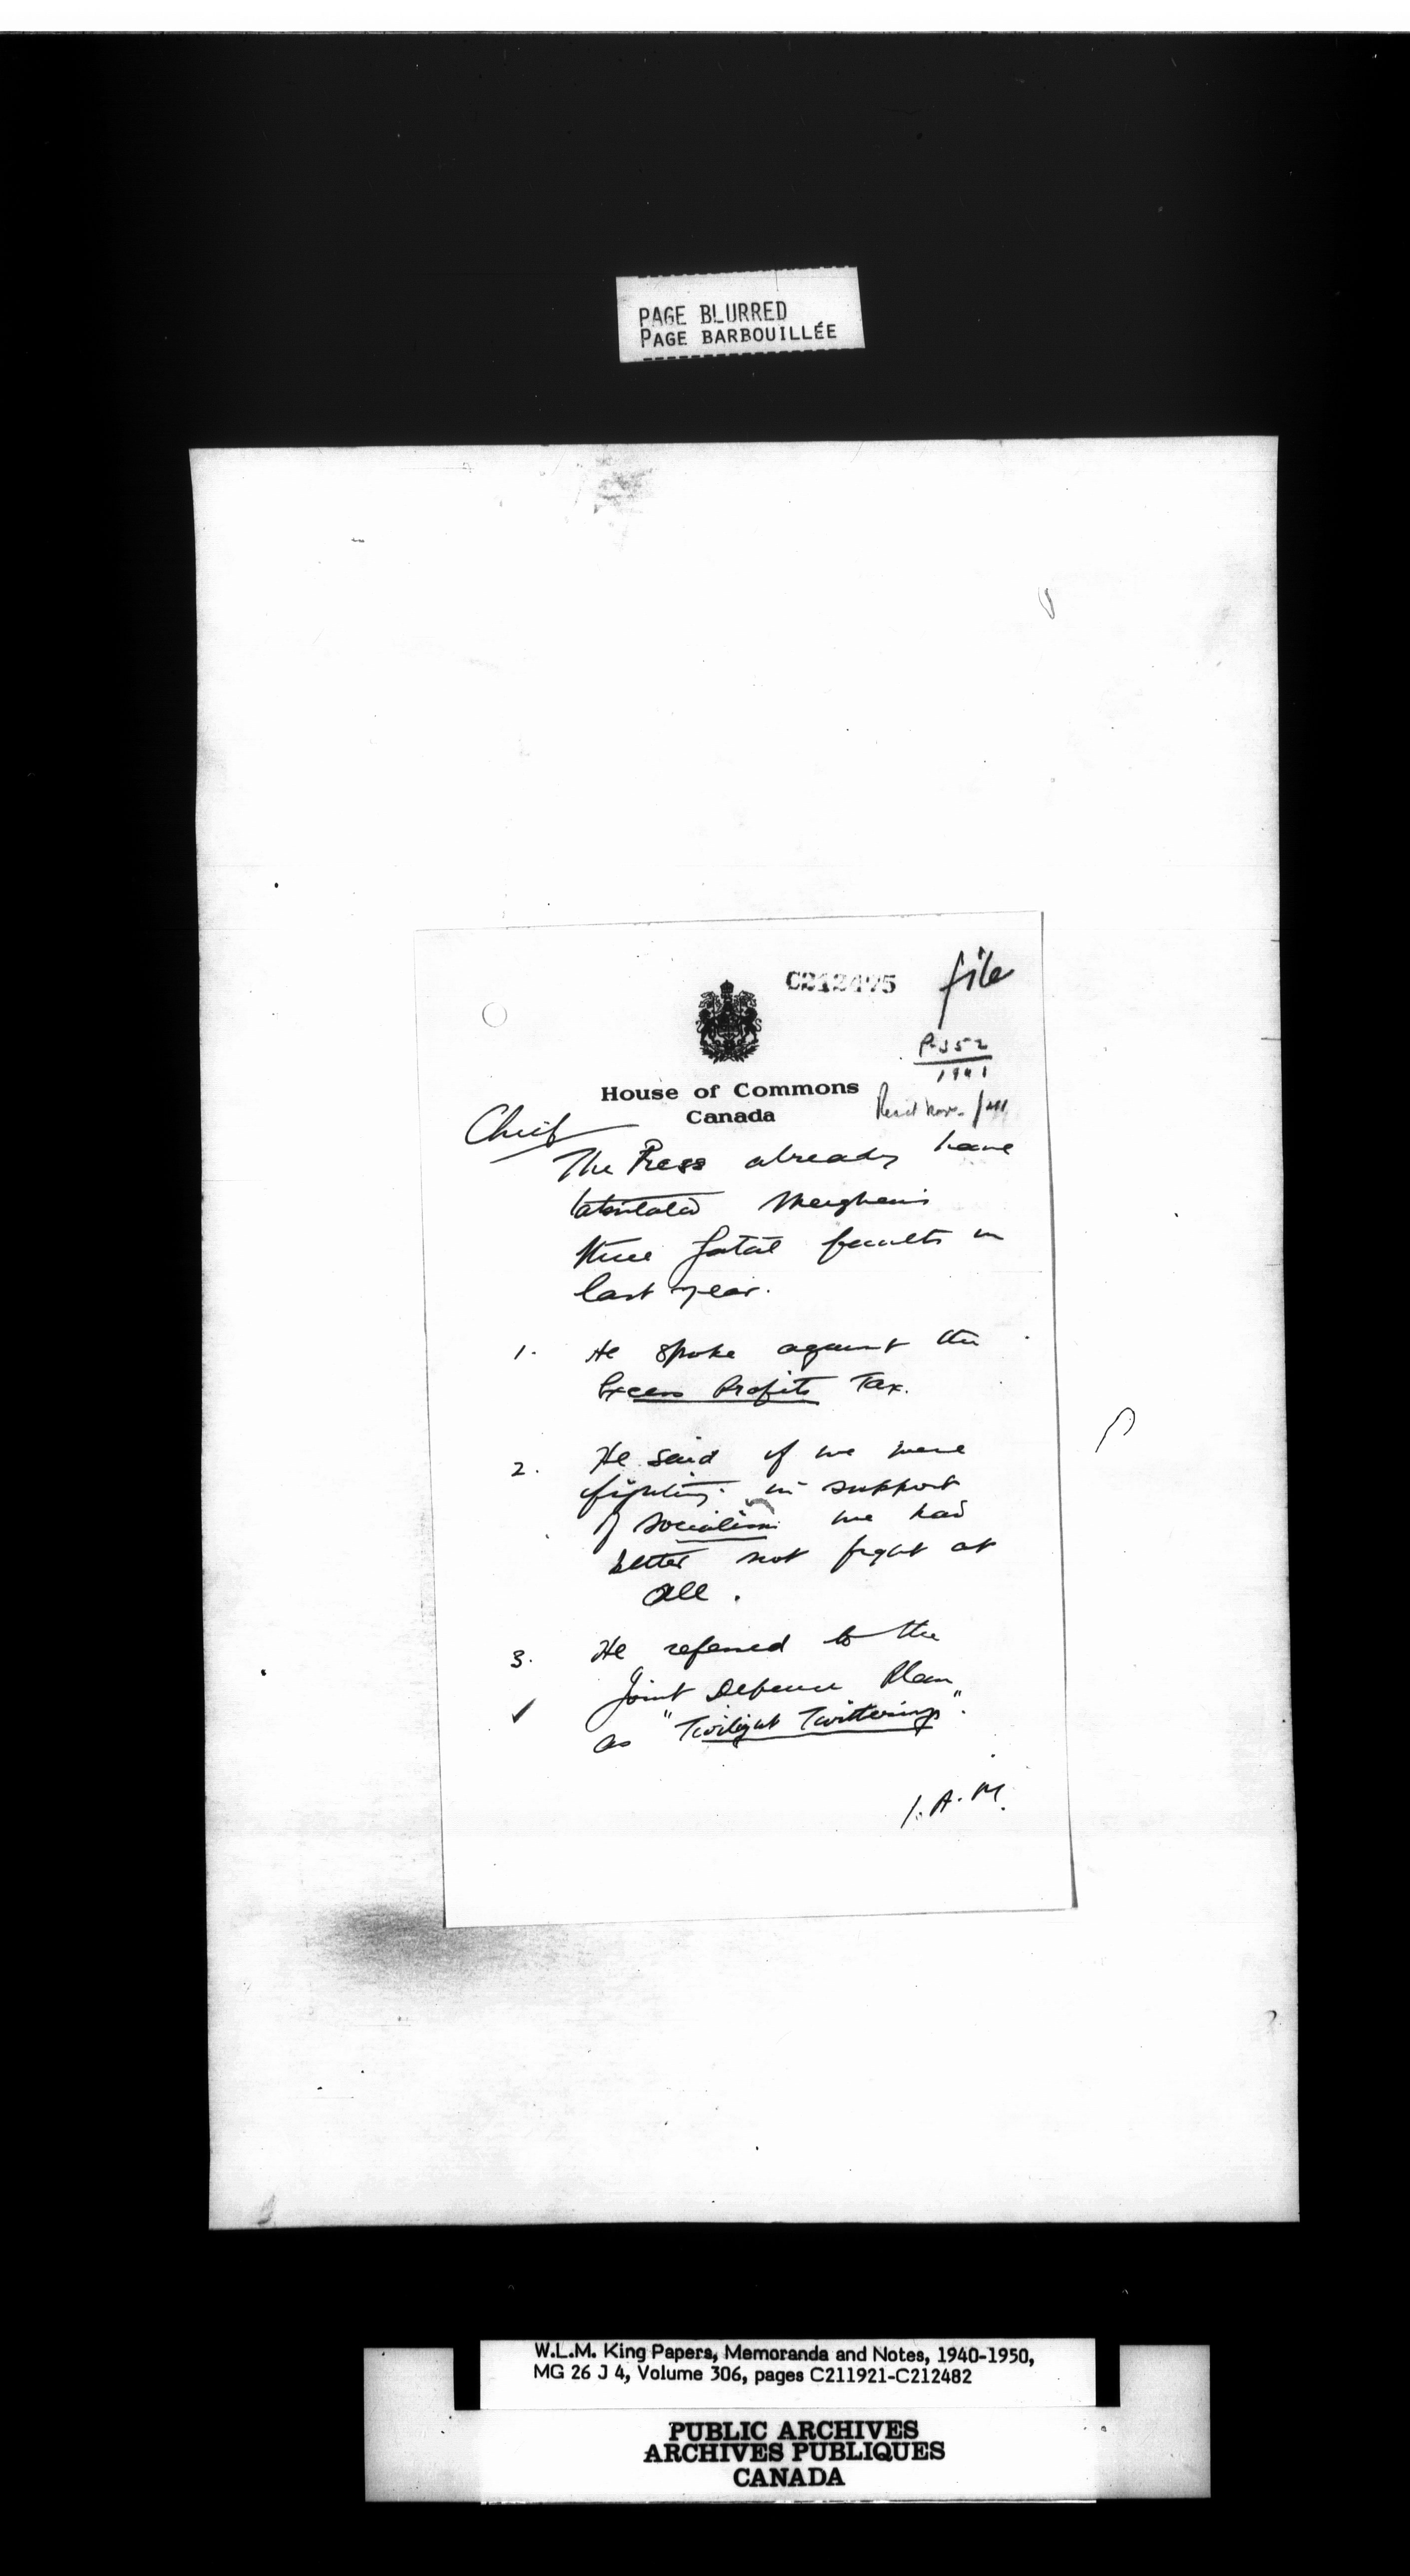 PAGE BLURRED
PAGE BARBOUILLÉE
file
P-352
1941
House of Commons
Canada
Chief
The Press already have
tabulated Meighen's
three fatal faults in
last year.
1. He spoke against the
Excess Profits Tax.
2. He said if we were
fighting in support
of socialism we had
better not fight at
all.
3. He referred to the
Joint Defence Plan
as "Twilight Twitterings".
I.A.M.
W.L.M. King Papers, Memoranda and Notes, 1940-1950,
MG 26 J 4, Volume 306, pages C211921-C212482
PUBLIC ARCHIVES
ARCHIVES PUBLIQUES
CANADA